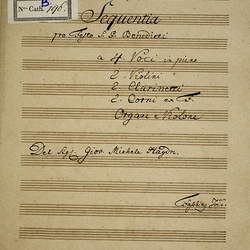 B
Nro Cath. 196.
Sequentia
pro Festo S. P. Benedicti
a 4 Voci in pieno
2. Violini
2. Clarinetti
2. Corni ex F.
Organo e Violone
Del Sigr. Giov. Michele Haydn.